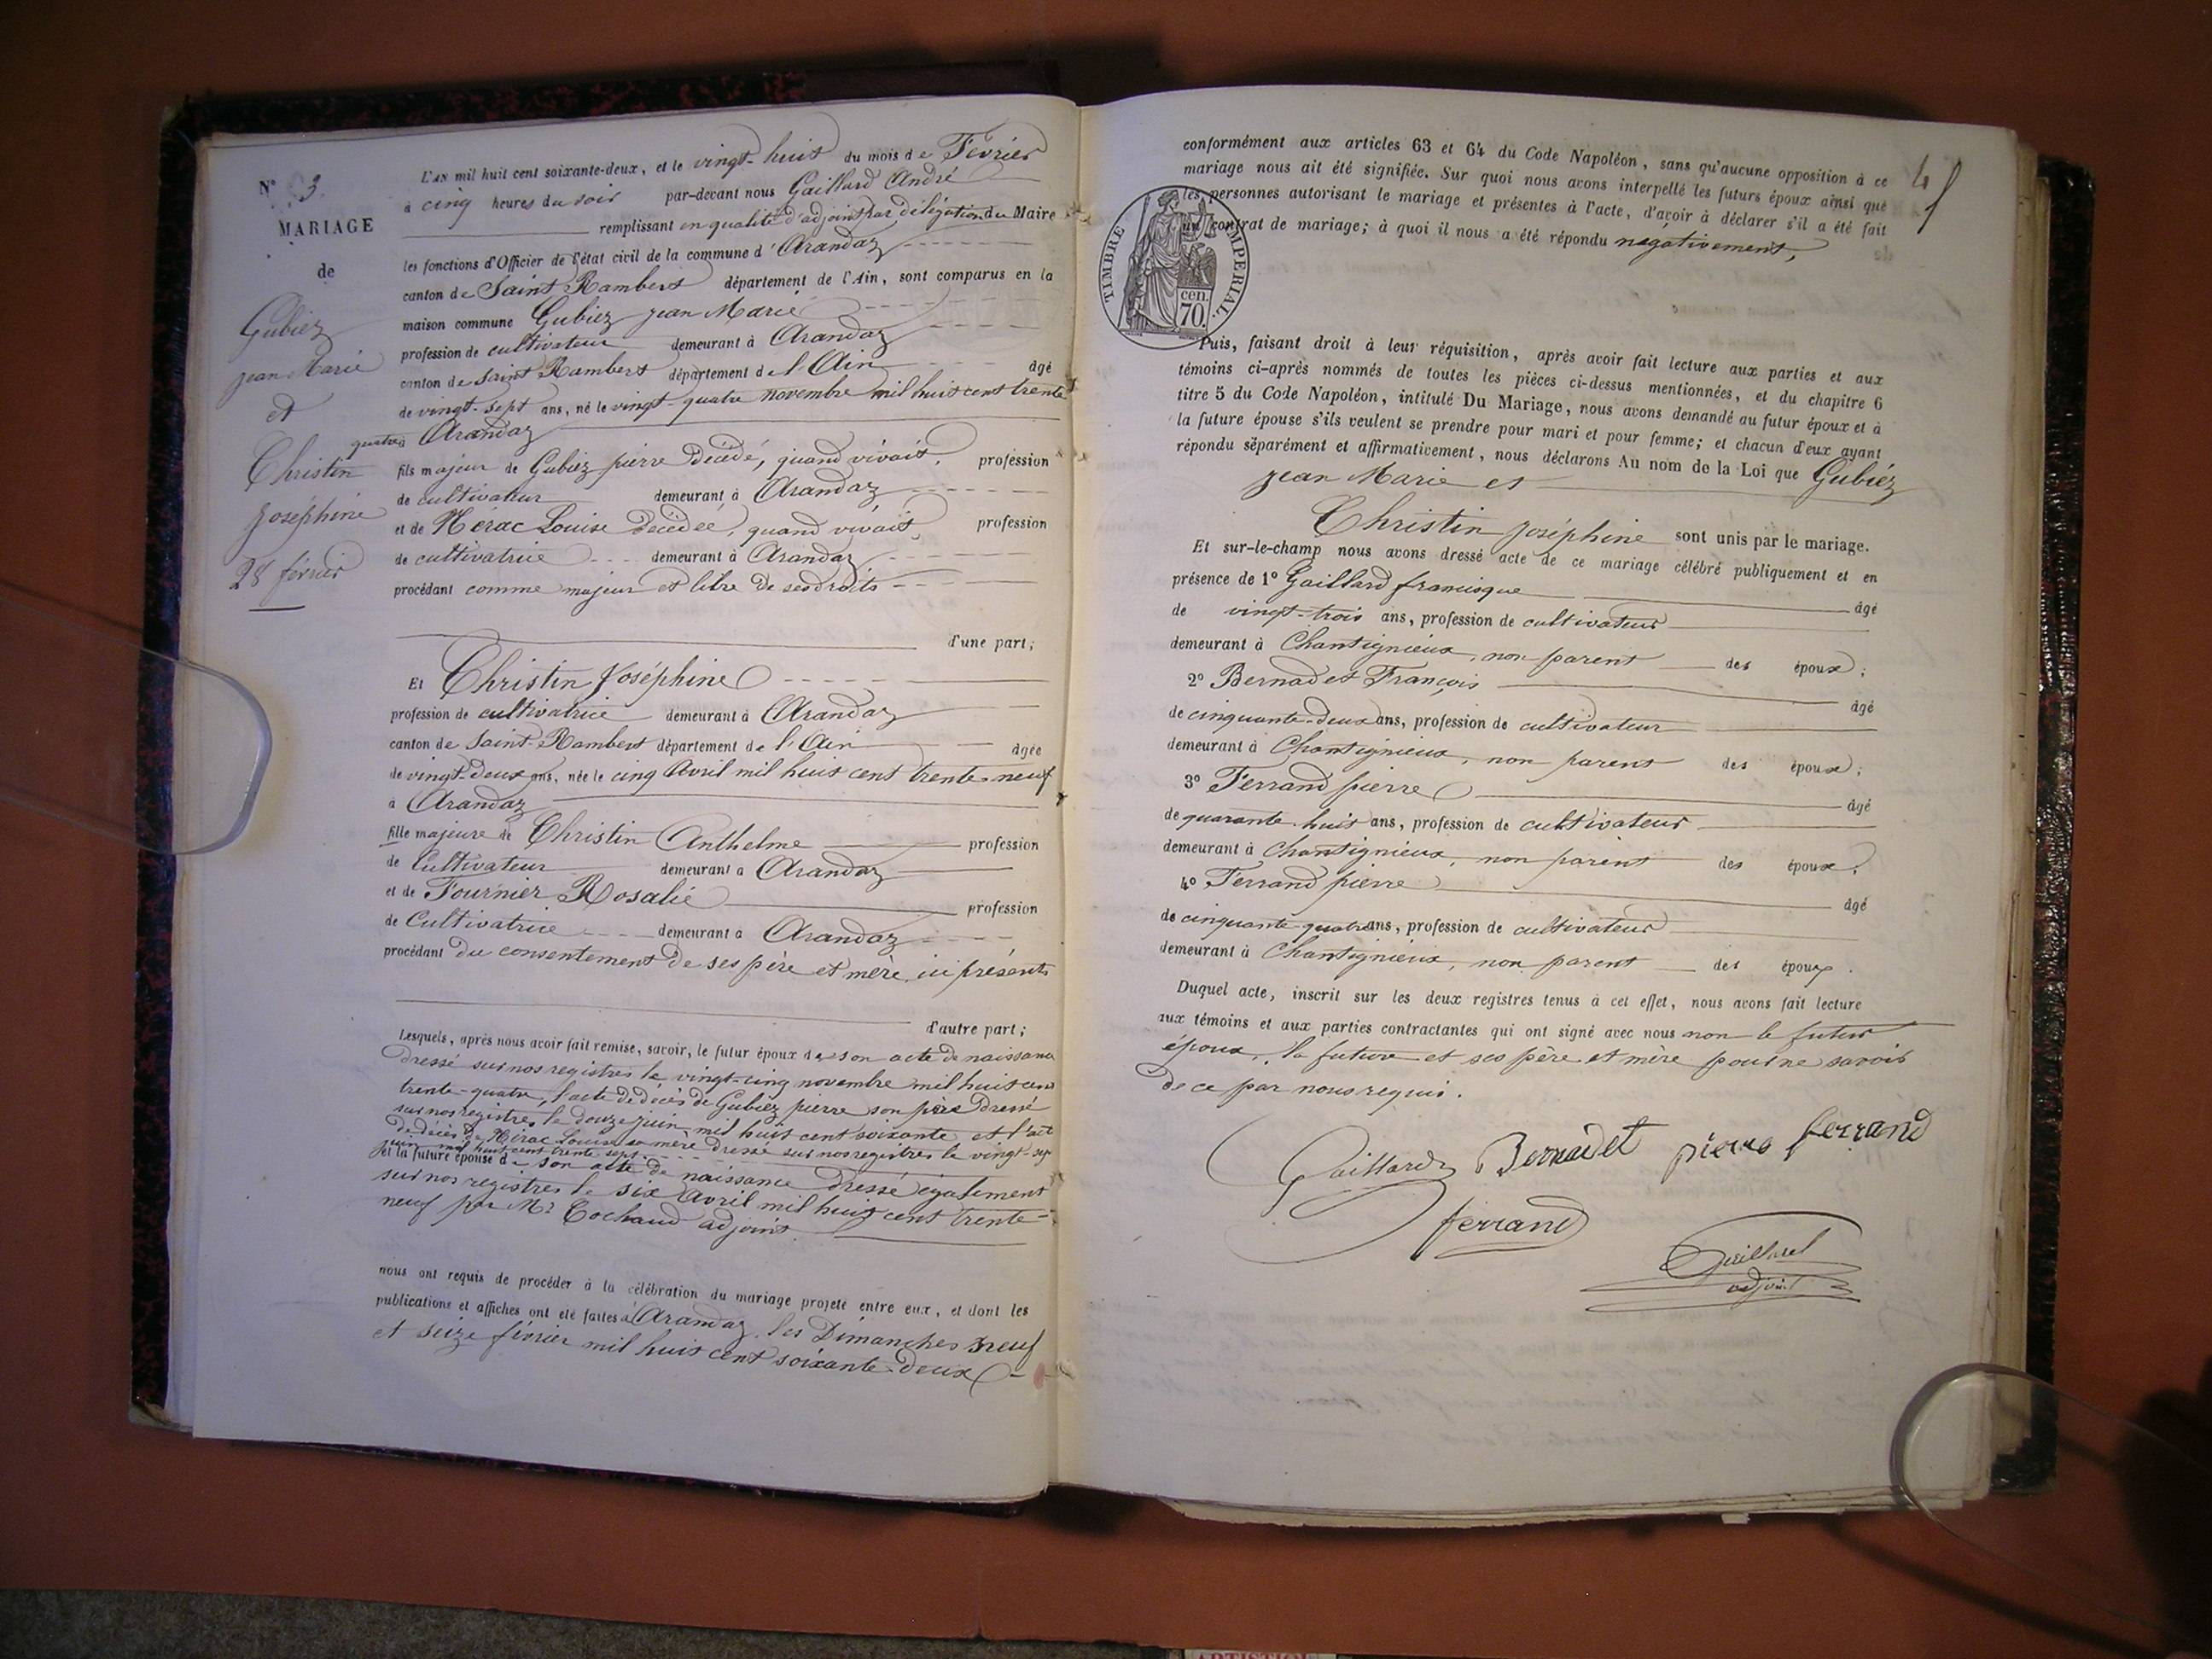 N° 3
MARIAGE
de
Gubiez
Jean Marie
et
Christin
Joséphine
28 février
L'AN mil huit cent soixante-deux, et le vingt-huit du mois de Février
à cinq heures du soir par-devant nous Gaillard André
remplissant en qualité d'adjoint par délégation du Maire
les fonctions d'Officier de l'état civil de la commune d'Arandaz
canton de Saint Rambert département de l'Ain, sont comparus en la
maison commune Gubiez Jean Marie
profession de cultivateur demeurant à Arandaz
canton de Saint Rambert département de l'Ain âgé
de vingt-sept ans, né le vingt-quatre novembre mil huit cent trente
quatre à Arandaz
fils majeur de Gubiez pierre décédé, quand vivait, profession
de cultivateur demeurant à Arandaz
et de Hérac Louise décédée, quand vivait, profession
de cultivatrice demeurant à Arandaz
procédant comme majeur et libre de ses droits
d'une part;
Et Christin Joséphine
profession de cultivatrice demeurant à Arandaz
canton de Saint-Rambert département de l'Ain âgée
de vingt-deux ans, née le cinq Avril mil huit cent trente-neuf
à Arandaz
fille majeure de Christin Anthelme profession
de Cultivateur demeurant à Arandaz
et de Fournier Rosalie profession
de Cultivatrice demeurant à Arandaz
procédant du consentement de ses père et mère ici présents
d'autre part;
Lesquels, après nous avoir fait remise, savoir, le futur époux de son acte de naissance
dressé sur nos registres le vingt-cinq novembre mil huit cent
trente-quatre, l'acte de décès de Gubiez pierre son père dressé
sur nos registres le douze juin mil huit cent soixante et l'act
de décès de Hérac Louise sa mère dressé sur nos registres le vingt-sept
juin mil huit cent trente sept
et la future épouse de son acte de naissance dressé également
sur nos registres le six Avril mil huit cent trente-
neuf par Mr Cochaud adjoint.
nous ont requis de procéder à la célébration du mariage projeté entre eux, et dont les
publications et affiches ont été faites à Arandaz, les Dimanches neuf
et seize février mil huit cent soixante-deux
41
conformément aux articles 63 et 64 du Code Napoléon, sans qu'aucune opposition à ce
mariage nous ait été signifiée. Sur quoi nous avons interpellé les futurs époux ainsi que
les personnes autorisant le mariage et présentes à l'acte, d'avoir à déclarer s'il a été fait
un contrat de mariage; à quoi il nous a été répondu négativement,
TIMBRE IMPERIAL.
70 cen.
Puis, faisant droit à leur réquisition, après avoir fait lecture aux parties et aux
témoins ci-après nommés de toutes les pièces ci-dessus mentionnées, et du chapitre 6
titre 5 du Code Napoléon, intitulé Du Mariage, nous avons demandé au futur époux et à
la future épouse s'ils veulent se prendre pour mari et pour femme; et chacun d'eux ayant
répondu séparément et affirmativement, nous déclarons Au nom de la Loi que Gubiez
Jean Marie et
Christin Joséphine sont unis par le mariage.
Et sur-le-champ nous avons dressé acte de ce mariage célébré publiquement et en
présence de 1° Gaillard francisque âgé
de vingt-trois ans, profession de cultivateur
demeurant à Chantignieux, non parent des époux;
2° Bernadet François âgé
de cinquante-deux ans, profession de cultivateur
demeurant à Chantignieux, non parent des époux;
3° Ferrand pierre âgé
de quarante-huit ans, profession de cultivateur
demeurant à Chantignieux, non parent des époux;
4° Ferrand pierre âgé
de cinquante-quatre ans, profession de cultivateur
demeurant à Chantignieux, non parent des époux.
Duquel acte, inscrit sur les deux registres tenus à cet effet, nous avons fait lecture
aux témoins et aux parties contractantes qui ont signé avec nous non le futur
époux, la future et ses père et mère pour ne savoir
de ce par nous requis.
Gaillard Bernadet pierre ferrand
ferrand
Gaillard
adjoint